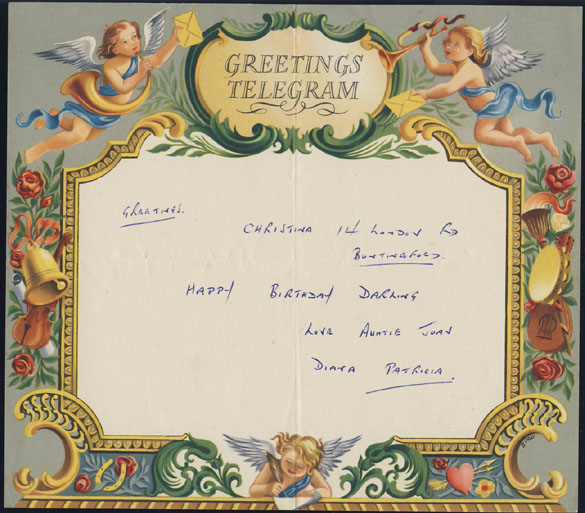 GREETINGS
TELEGRAM
GREETINGS.
CHRISTINA 14 LONDON RD
BUNTINGFORD.
HAPPY BIRTHDAY DARLING
LOVE AUNTIE JOAN
DIANA PATRICIA.